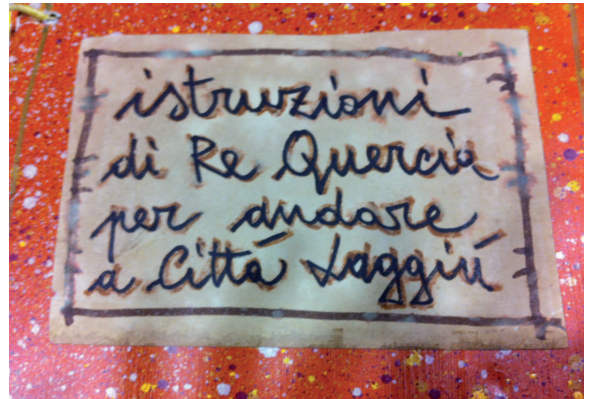 istruzioni
di Re Quercia
per andare
a Cittá Laggiú